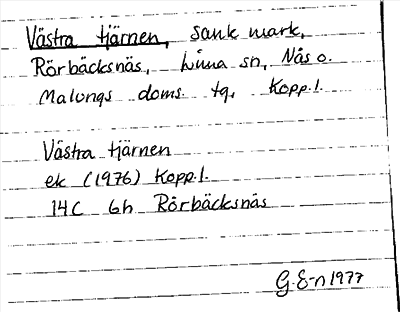 Västra tjärnen, sank mark,
Rörbäcksnäs, Lima sn, Nås o.
Malungs doms. tg, Kopp.l.
Västra tjärnen
ek (1976) Kopp.l.
14C 6h Rörbäcksnäs
G.E-n 1977